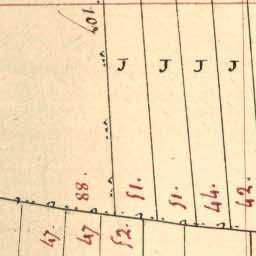 107
J J J J
88. 51. 51. 44. 42.
47. 47 52.